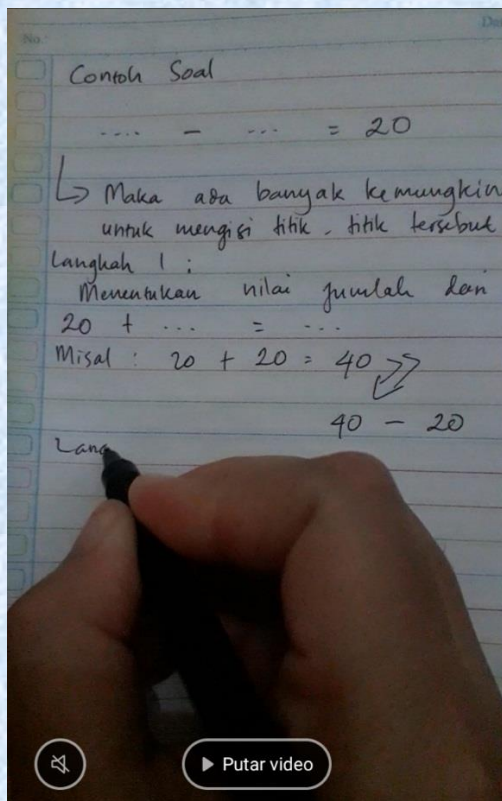 No:
Contoh Soal
.... - ... = 20
↳ Maka ada banyak kemungkin
untuk mengisi titik. titik tersebut
Langkah 1 :
Menentukan nilai jumlah dari
20 + ... = ...
Misal : 20 + 20 = 40
40 - 20
Lang
Putar video